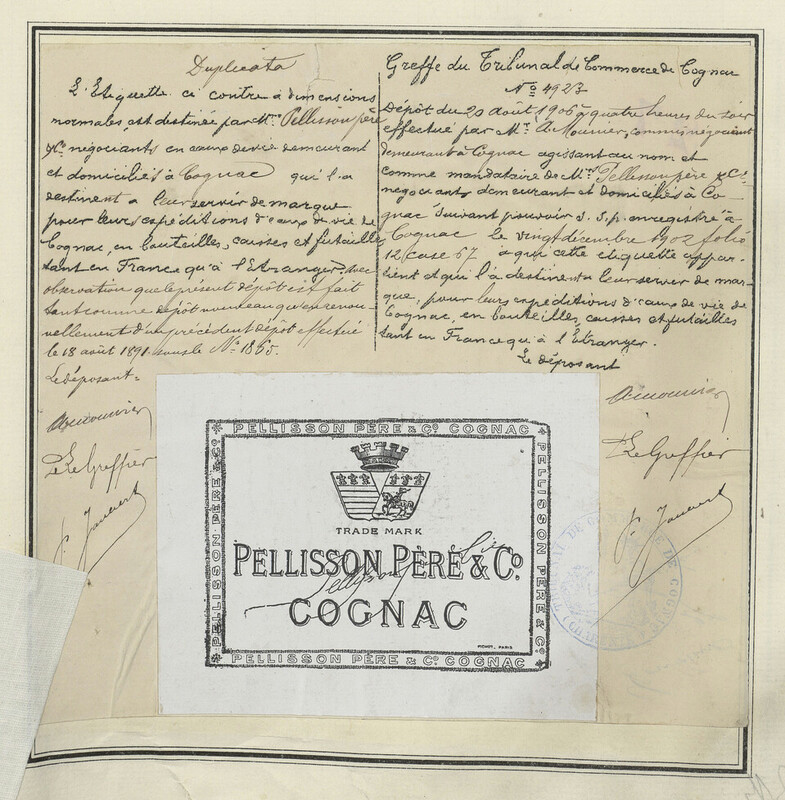 Duplicata
L'Etiquette ci contre à dimensions
normales, est destinée par Mrs Pellisson père
& Cie négociants en eaux de vie demeurant
et domiciliés à Cognac qu'il a
destinent a leur servir de marque
pour leurs expéditions d'eaux de vie de
Cognac, en bouteilles, caisses et futailles
tant en France qu'à l'Etranger, avec
observation que le présent dépôt est fait
tant comme dépôt nouveau qu'en renou-
vellement d'un précédent dépôt effectué
le 18 août 1891 sous le No 1855.
Le déposant
Le Greffier
Greffe du Tribunal de Commerce de Cognac
No 4923
Dépôt du 20 août 1906 à quatre heures du soir
effectué par Mr A. Mounier, commis négociant
demeurant à Cognac agissant au nom et
comme mandataire de Mrs Pellisson père & Cie
négociants demeurant et domiciliés à Co
gnac suivant pouvoir s. s. p. enregistré à
Cognac le vingt décembre 1902 folio
12 case 67 à qui cette etiquette appar-
tient et qui l'a destinent a leur server de mar-
que, pour leurs expéditions d'eaux de vie de
Cognac, en bouteilles, caisses et futailles
tant en France qu'à l'Etranger.
Le déposant
Le Greffier
PELLISSON PÈRE & Co COGNAC
PELLISSON PERE & Co
PELLISSON PERE & Co
TRADE MARK
PELLISSON PÈRE & Co
COGNAC
PICHOT, PARIS
PELLISSON PÈRE & Co COGNAC